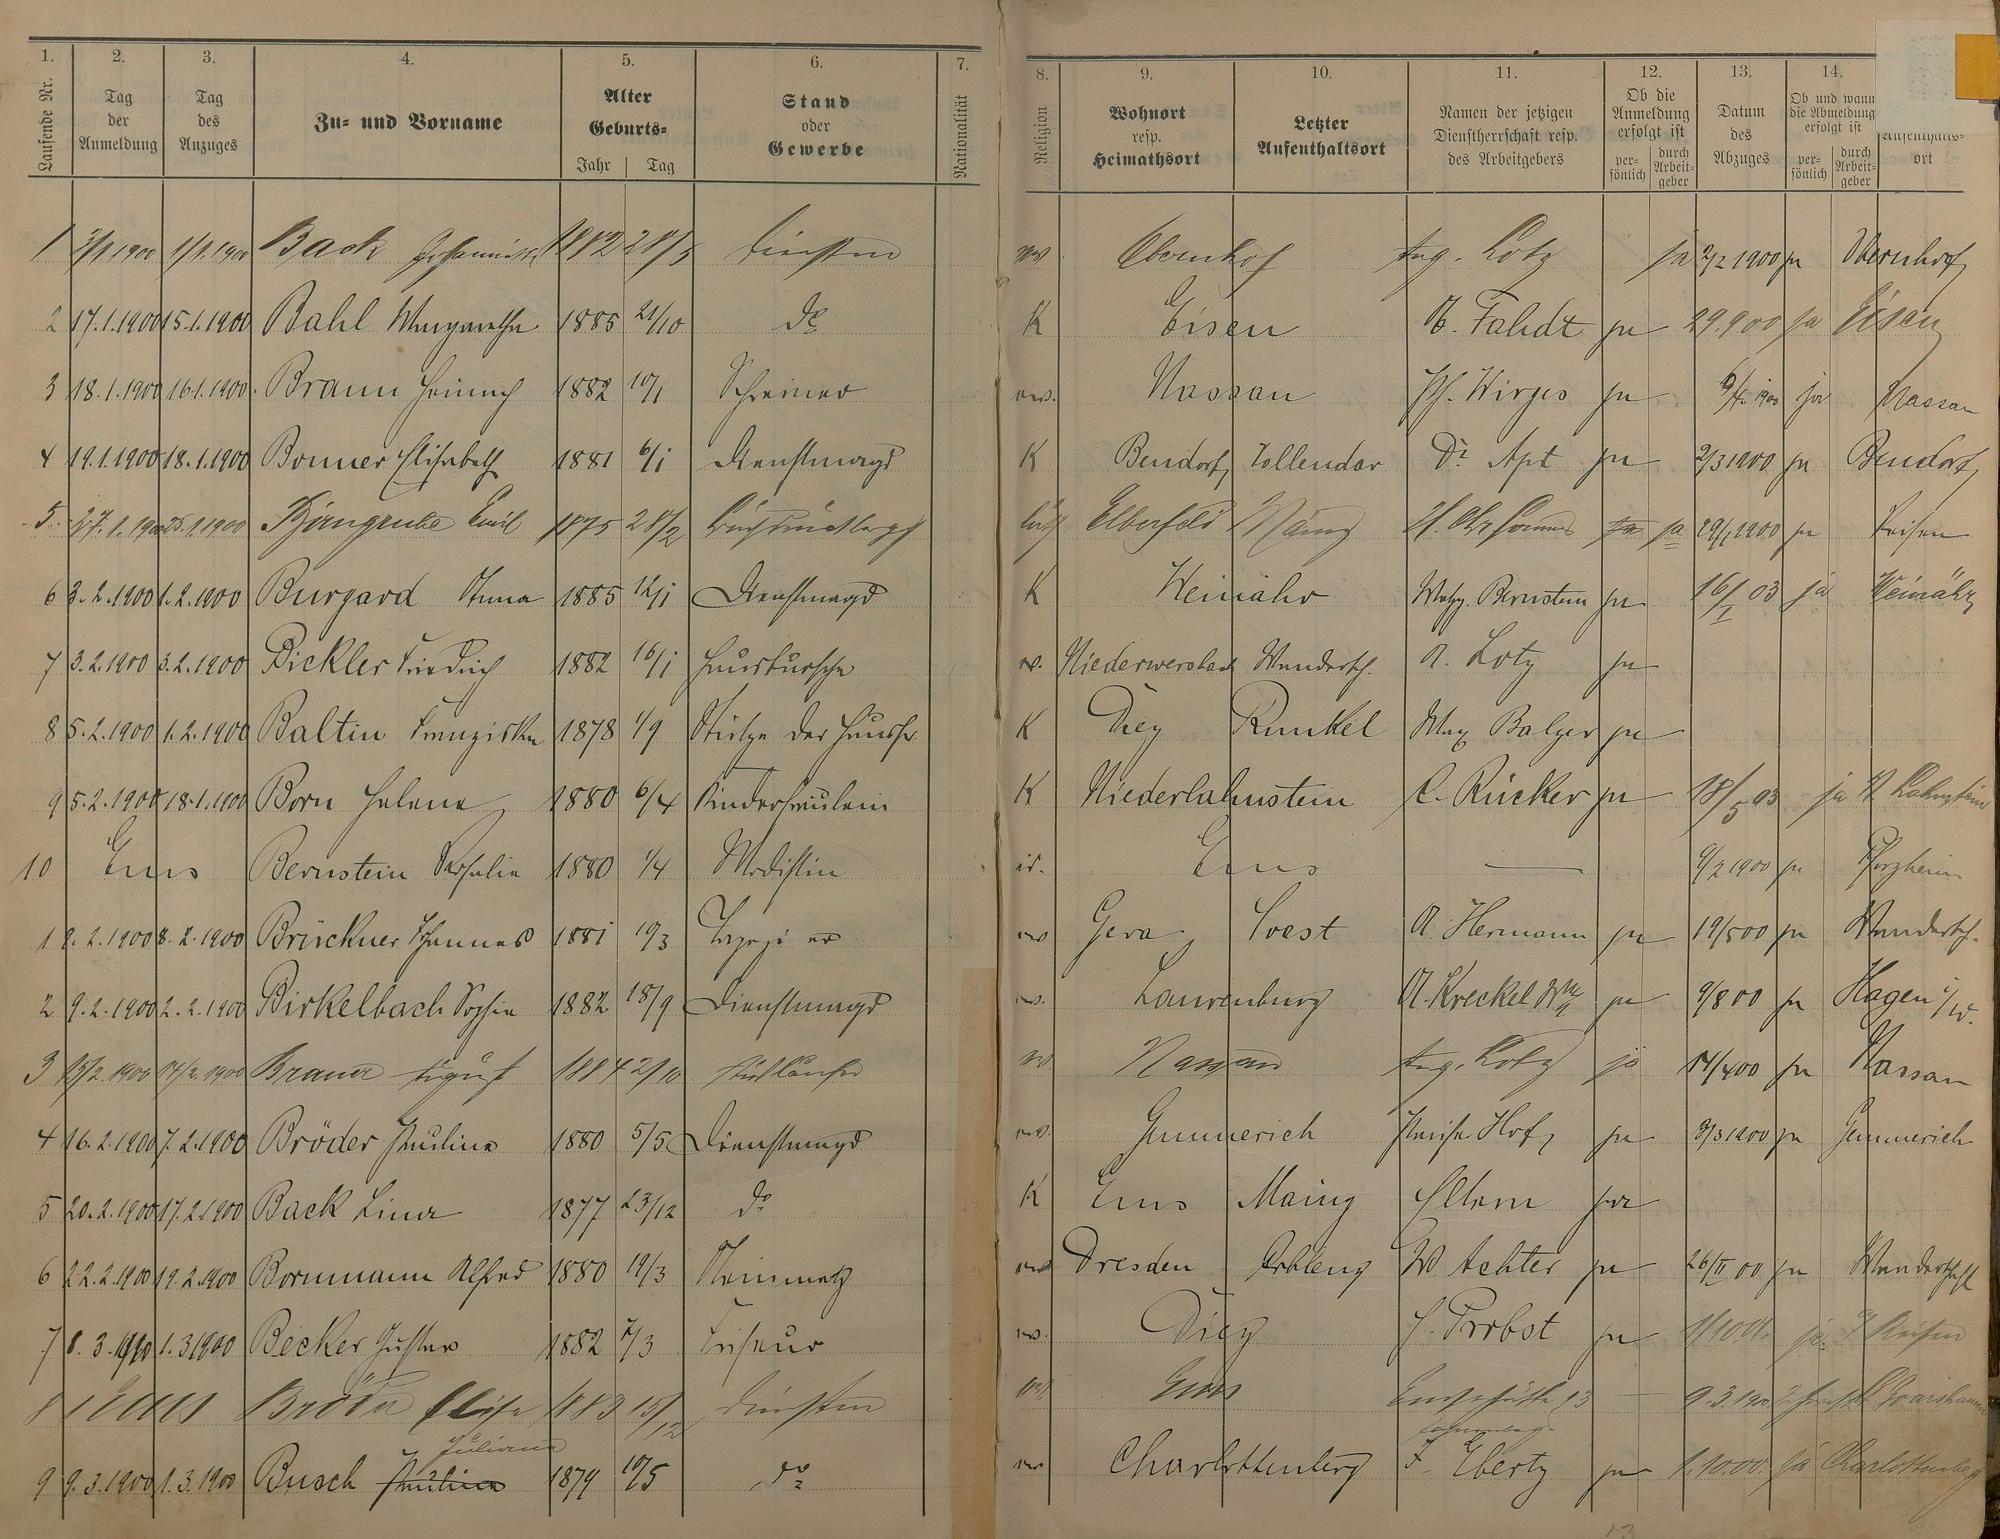 1. 2. 3. 4. 5. 6. 7. 8. 9. 10. 11. 12. 13. 14.
Laufende Nr. Tag der Anmeldung Tag des Anzuges Zu- und Vorname Alter Geburts- Jahr Tag Stand oder Gewerbe Nationalität Religion Wohnort resp. Heimathsort Letzter Aufenthaltsort Namen der jetzigen Dienstherrschaft resp. des Arbeitgebers Ob die Anmeldung erfolgt ist per- sönlich durch Arbeit- geber Datum des Abzuges Ob und wann die Abmeldung erfolgt ist per- sönlich durch Arbeit- geber ort
1 1900 1/1.1900 Back 1882 28/5 Obernhof Aug. Lotz ja 2/2 1900 ja Obernhof
2 17.1.1900 15.1.1900 Bahl Margaretha 1885 21/10 do K Eisen A. Fahdt ja 29.9.00 ja Eisen
3 18.1.1900 16.1.1900 Braun Heinrich 1882 10/1 Schreiner ev. Nassau Ph. Wirges ja 1900 ja Nassau
4 19.1.1900 18.1.1900 Bonner Elisabeth 1881 6/1 Dienstmagd K Bendorf Vallendar Dr. Apt ja 2/3 1900 ja Bendorf
5 27.1.1900 25.1.1900 Emil 1875 28/2 Elberfeld Mainz ja ja 29/1 1900 ja Reisen
6 3.2.1900 1.2.1900 Burgard Anna 1885 12/1 Dienstmagd K Weinähr Bernstein ja 16/I 03 ja Weinähr
7 3.2.1900 3.2.1900 Bickler Friedrich 1882 16/1 Hausbursche ev. Wandersch. A. Lotz ja
8 5.2.1900 1.2.1900 Baltin Franziska 1878 1/9 Stütze der Hausfr. K Diez Runkel Max Balzer ja
9 5.2.1900 18.1.1900 Born Helene 1880 6/4 Kinderfräulein K Niederlahnstein C. Rücker ja 18/5 03 ja N. Lahnstein
10 Ems Bernstein Rosalie 1880 1/4 Modistin isr. Ems — 9/2 1900 ja Pforzheim
1 9.2.1900 8.2.1900 Brückner Johannes 1881 10/3 Tapezierer ev Gera Soest A. Hermann ja 19/5 00 ja Wandersch.
2 9.2.1900 2.2.1900 Birkelbach Sophie 1882 18/9 Dienstmagd ev. Laurenburg A. Kreckel Ww ja 9/8 00 ja Hagen i/W.
3 15/2 1900 14/2 1900 Brauer August 1884 2/10 ev Nassau Aug. Lotz ja 14/4 00 ja Nassau
4 16.2.1900 7.2.1900 Bröder Pauline 1880 5/5 Dienstmagd ev. Gemmerich Hof ja 3/3 1900 ja Gemmerich
5 20.2.1900 17.2.1900 Back Lina 1877 23/12 do K Ems Mainz Eltern ja
6 22.2.1900 19.2.1900 Bornmann Alfred 1880 19/3 Steinmetz ev Dresden Coblenz W Achter ja 26/II 00 ja Wanderschaft
7 8.3.1900 1.3.1900 Becker Gustav 1882 7/3 Friseur ev. Diez Probst ja Reisen
8 Ems Elise 1883 15/12 Ems 9.3.1900
Juliane
9 9.3.1900 1.3.1900 Busch Pauline 1879 10/5 do ev Charlottenberg F. Ebertz ja 1.10.00 ja Charlottenberg
13